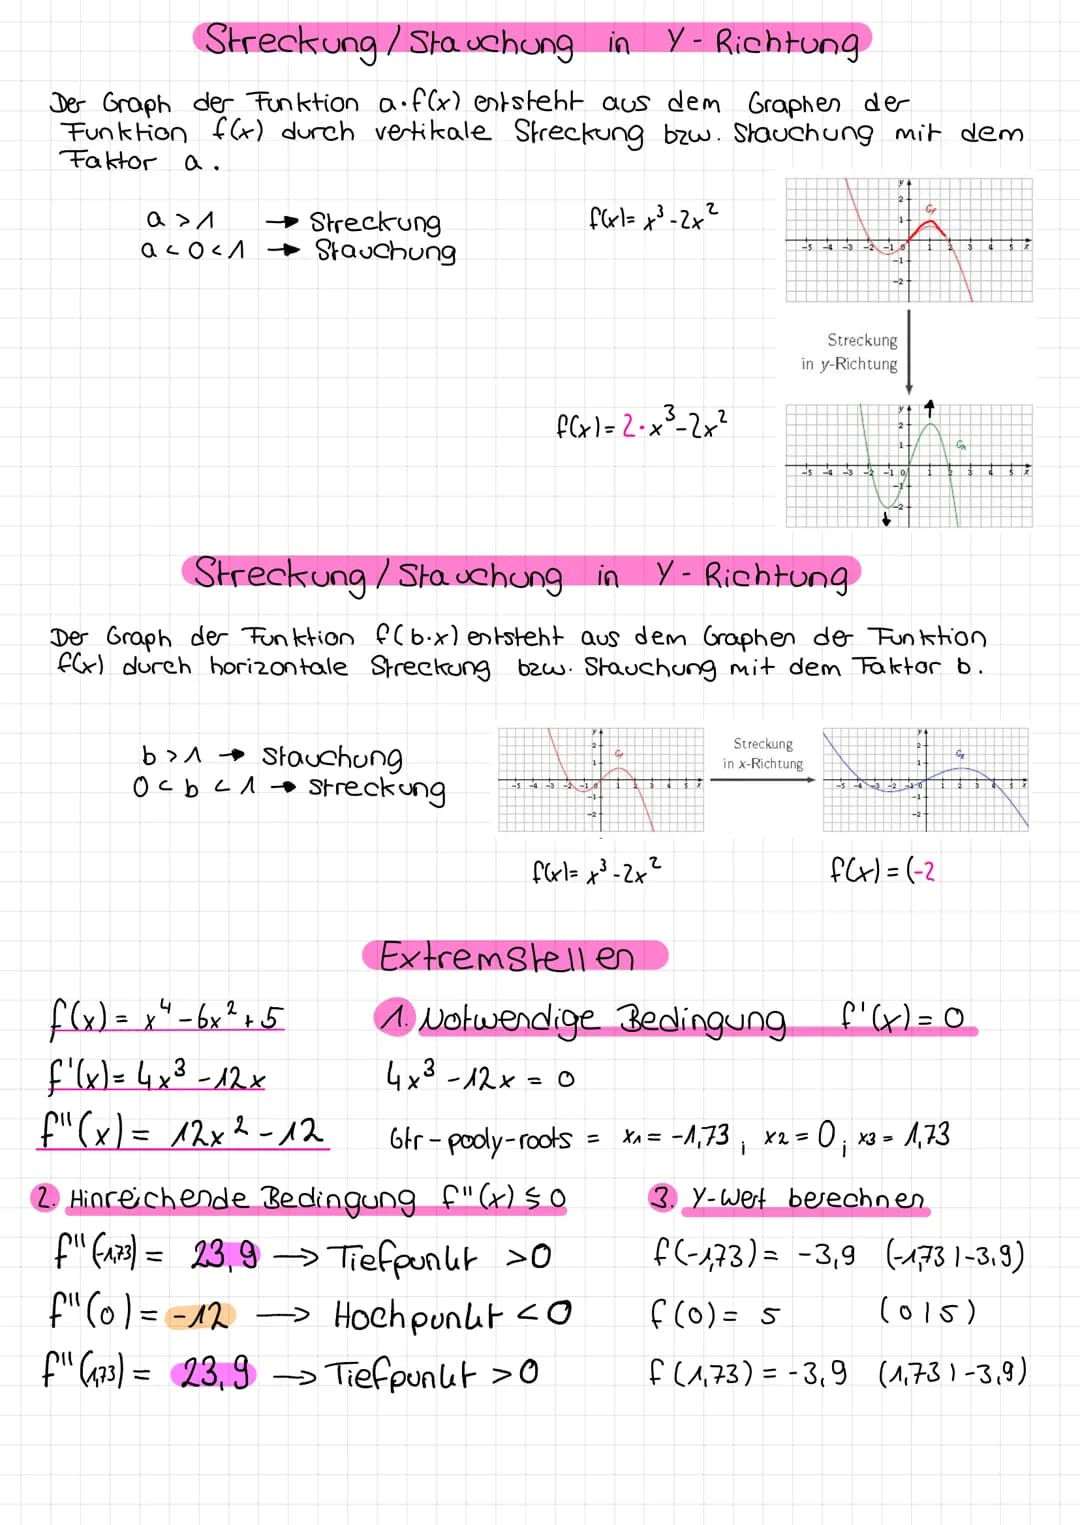 Streckung / Stauchung in Y-Richtung
Der Graph der Funktion a·f(x) entsteht aus dem Graphen der
Funktion f(x) durch vertikale Streckung bzw. Stauchung mit dem
Faktor a.
a > 1 → Streckung
a < 0 < 1 → Stauchung
f(x) = x³ - 2x²
Streckung
in y-Richtung
f(x) = 2·x³ - 2x²
Streckung / Stauchung in Y-Richtung
Der Graph der Funktion f(b·x) entsteht aus dem Graphen der Funktion
f(x) durch horizontale Streckung bzw. Stauchung mit dem Faktor b.
b > 1 → Stauchung
0 < b < 1 → Streckung
Streckung
in x-Richtung
f(x) = x³ - 2x²
f(x) = (-2
Extremstellen
f(x) = x⁴ - 6x² + 5
f'(x) = 4x³ - 12x
f''(x) = 12x² - 12
1. Notwendige Bedingung f'(x) = 0
4x³ - 12x = 0
Gtr - pooly-roots = x1 = -1,73 ; x2 = 0 ; x3 = 1,73
2. Hinreichende Bedingung f''(x) ≶ 0
f''(-1,73) = 23,9 → Tiefpunkt > 0
f''(0) = -12 → Hochpunkt < 0
f''(1,73) = 23,9 → Tiefpunkt > 0
3. Y-Wert berechnen
f(-1,73) = -3,9 (-1,73 | -3,9)
f(0) = 5 (0 | 5)
f(1,73) = -3,9 (1,73 | -3,9)